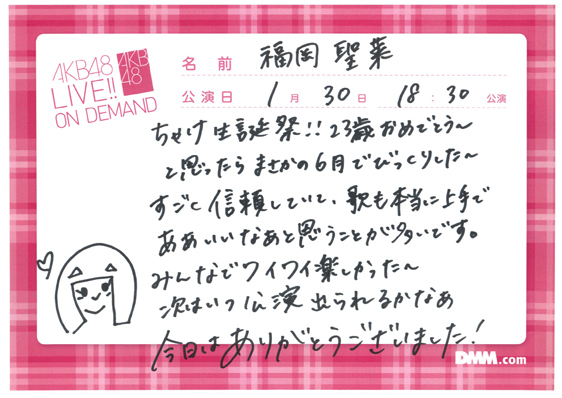 AKB48
LIVE!!
ON DEMAND
AKB
48
名前 福岡 聖菜
公演日 1月 30日 18:30 公演
ちゃけ生誕祭!! 23歳おめでとう〜
と思ったらまさかの6月でびっくりした〜
すごく信頼していて、歌も本当に上手で
ああいいなあと思うことが多いです。
みんなでワイワイ楽しかった〜
次はいつ公演出られるかなあ
今日はありがとうございました!
DMM.com